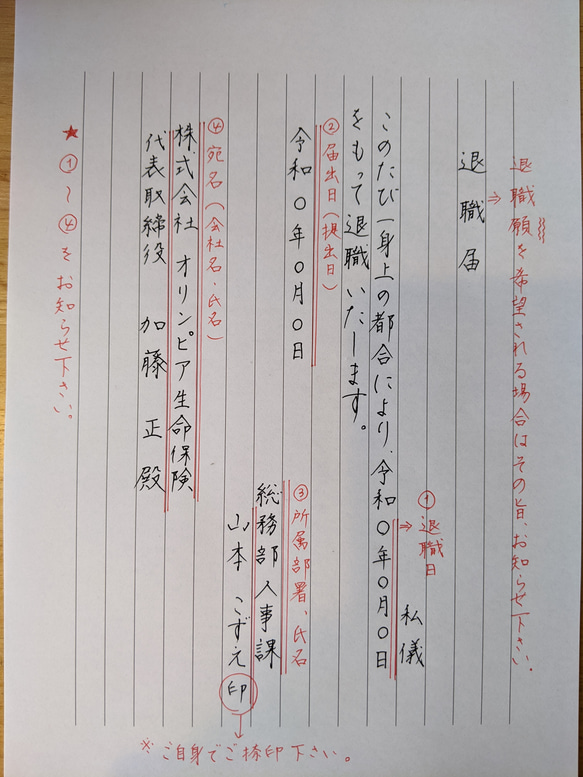 退職願を希望される場合はその旨、お知らせ下さい。
⇒
退職届
①退職日
⇒
私儀
このたび一身上の都合により、令和〇年〇月〇日
をもって退職いたします。
②届出日(提出日)
令和〇年〇月〇日
③所属部署、氏名
総務部人事課
山本こずえ 印
※ご自身でご捺印下さい。
④宛名(会社名・氏名)
株式会社 オリンピア生命保険
代表取締役 加藤 正 殿
★①~④をお知らせ下さい。